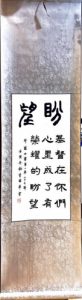 盼望
基督在你們
心里成了有
榮耀的盼望